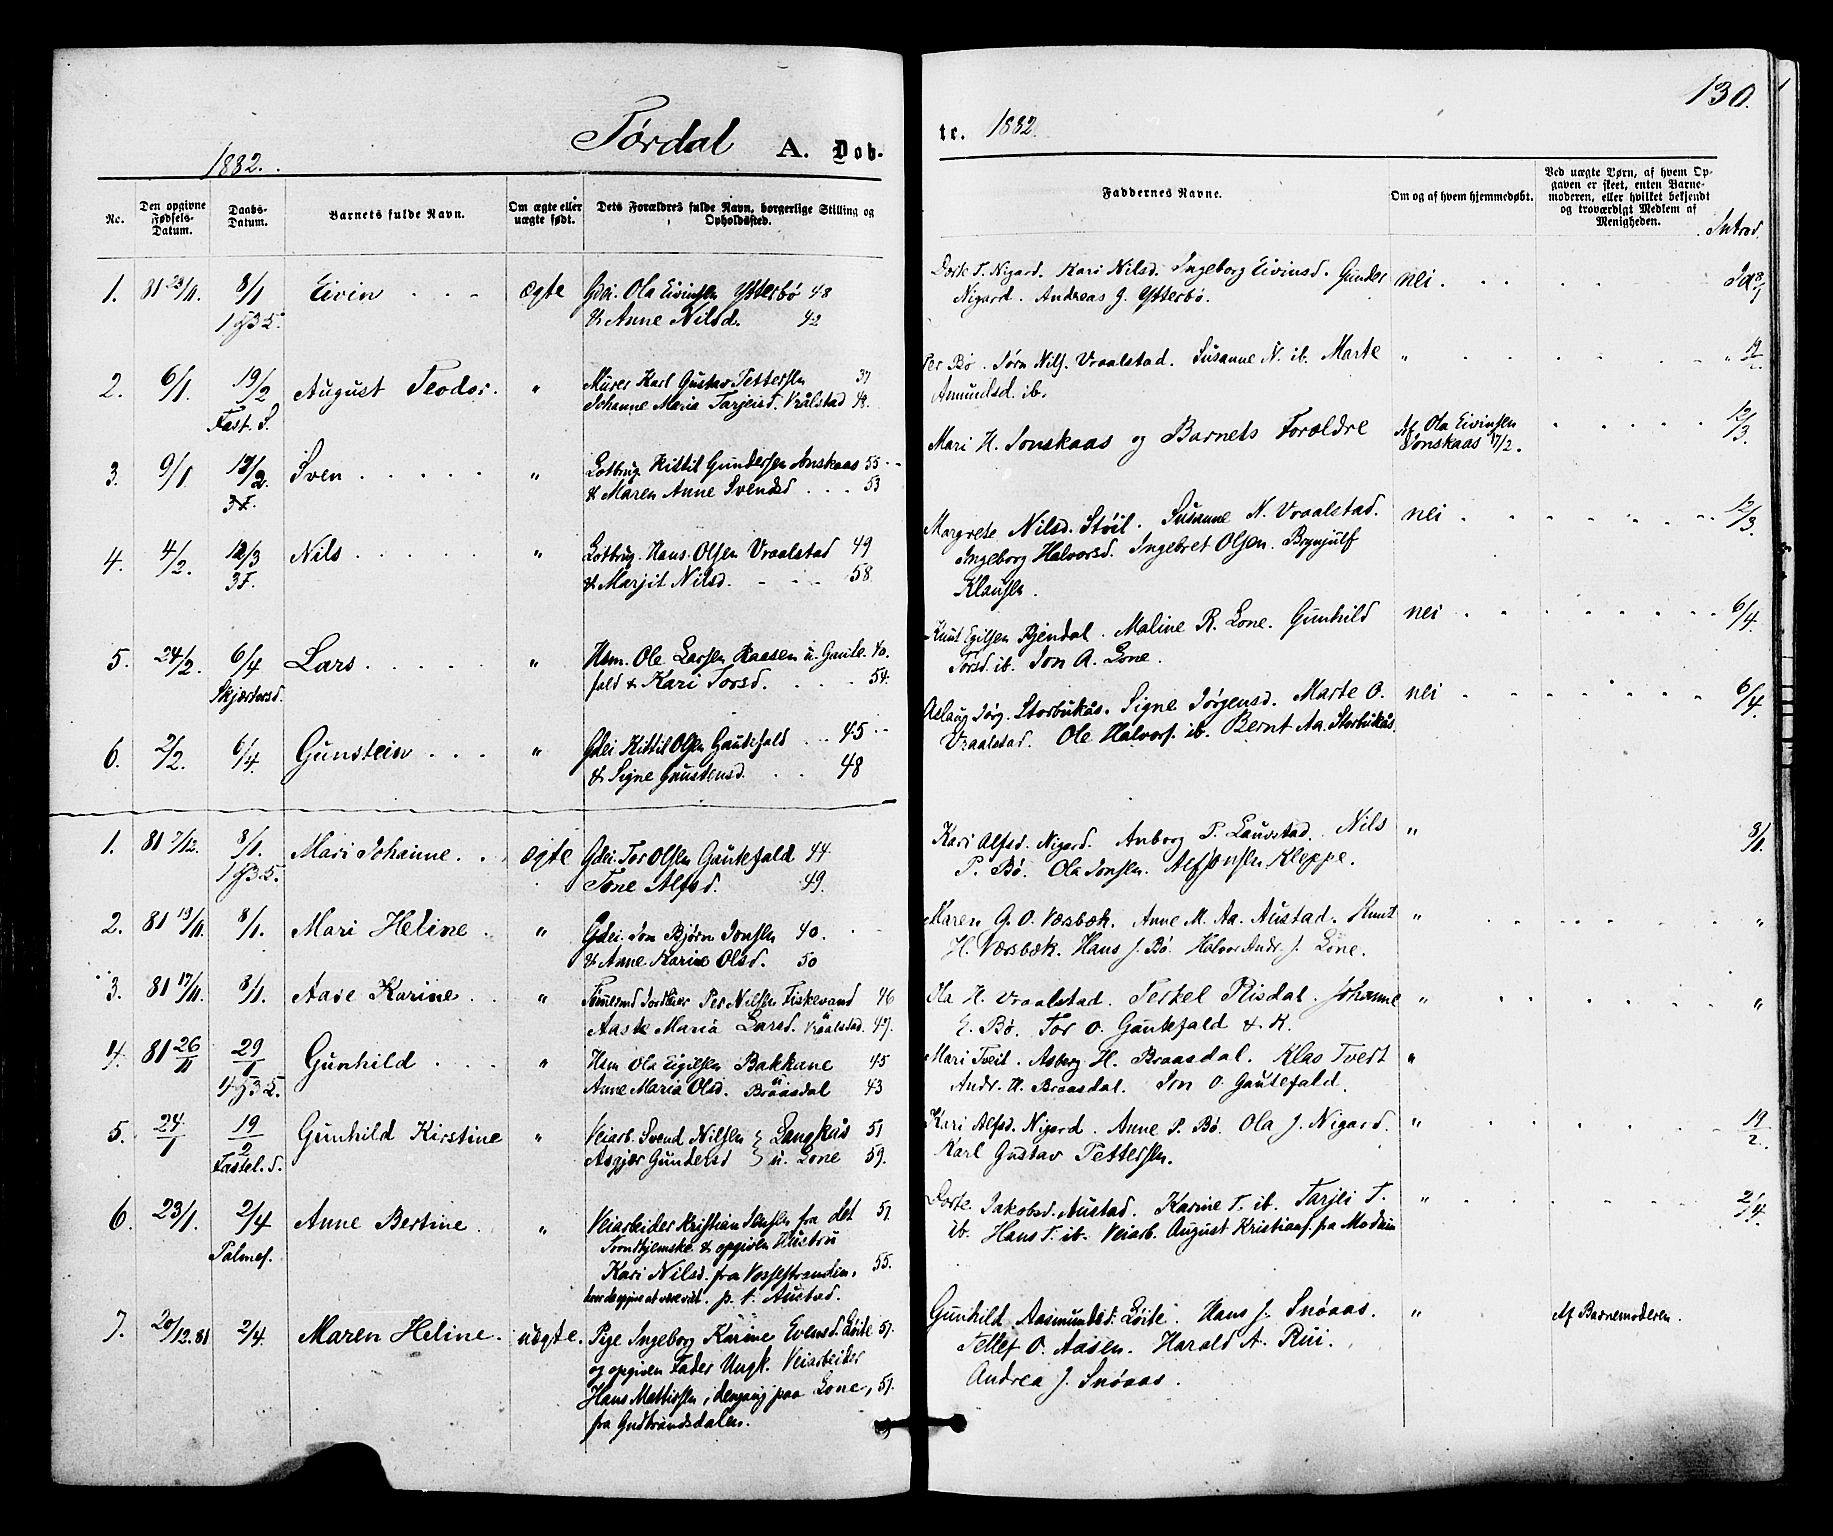 Tørdal A. Dob-
te. 1882.
130.
1882.
No.
Den opgivne Fødsels-Datum.
Daabs-Datum.
Barnets fulde Navn.
Om ægte eller uægte født.
Dets Forældres fulde Navn, borgerlige Stilling og Opholdssted.
Faddernes Navne.
Om og af hvem hjemmedøbt.
Ved uægte Børn, af hvem Opgaven er skeet, enten Barnemoderen, eller hvilket bekjendt og troværdigt Medlem af Menigheden.
Introd.
1. 81 23/11. 8/1 Eivin . . . ægte Gdei. Ola Eivinsen Ytterbø 48
& Anne Nilsd. 42
Dorte T. Nigard. Kari Nilsd. Ingeborg Eivinsd. Gunder nei.
Nigard. Andreas J. Ytterbø.
2. 6/1 19/2 August Teodor. " Murer Karl Gustav Pettersen 37
Fast. S. Johanne Maria Tarjeisd. Vrålstad 48.
Per Bø. Jørn Nilss. Vraalstad. Susanne N. ib. Marte " 19/2.
Amundsd. ib.
3. 9/1 12/2. Sven . . . . . " Lotbrug. Kittil Gundersen Jonskaas 55
& Maren Anne Svendsd . . . 53
Mari H. Jonskaas og Barnets Forældre af Ola Eivinsen 12/3
Jonskaas 17/2.
4. 4/2. 12/3 Nils . . . . . " Lotbrug. Hans Olsen Vraalstad 49
3 F. & Marjit Nilsd. 58
Margrete Nilsd. Støil. Susanne N. Vraalstad. nei 12/3.
Ingeborg Halvorsd. Ingebret Olsen. Brynjulf
Klausen.
5. 24/2. 6/4 Lars . . . . . " Hsm. Ole Larsen Raasen u. Gaute- 40.
Skjærtorsd. fald & Kari Torsd. . . . 54.
Knut Egilsen Fjendal. Maline R. Lone. Gunhild nei 6/4.
Torsd. ib. Jon A. Lone.
6. 2/2. 6/4. Gunstein . . . " Gdei Kittil Olsen Gautefald . . 45
& Signe Gunstensd. . . 48
Aslaug Jørg. Storbukås. Signe Jørgensd. Marte O. nei 6/4.
Vraalstad. Ole Halvors. ib. Bernt Aa. Storbukås
1. 81 7/12. 8/1. Mari Johanne. ægte Gdei. Tor Olsen Gautefald 44
Tone Alfsd. 49.
Kari Alfsd. Nigard. Anborg P. Lauvstad. Nils " 8/1.
P. Bø. Ola Jonsen. Alf Jonsen Kleppe.
2. 81 13/11. 8/1. Mari Heline . " Gdei. Jon Bjørn Jonsen 40.
& Anne Karine Olsd. 50
Maren G. O. Væsbæk. Anne M. Aa. Austad. Knut " "
H. Væsbæk. Hans J. Bø. Halvor Andr. J. Lone.
3. 81 17/11. 8/1. Aase Karine . . " Per Nilsen Fiskevand 46
Aaste Maria Larsd. u Vraalstad. 47.
Ola H. Vraalstad. Terkel Risdal. Johanne " "
E. Bø. Tor O. Gautefald & K.
4. 81 26/11 29/1 Gunhild . . . " Hsm Ola Eigilsen Bakkane 45
Anne Maria Olsd. u Braasdal 43
Mari Tveit. Asborg H. Braasdal. Klas Tvedt "
Andr. H. Braasdal. Jon O. Gautefald.
5. 24/1 19/2 Gunhild Kirstine " Veiarb. Svend Nilsen } Langkås 51
Fastel. S. Asgjær Gundersd } u. Lone 59.
Kari Alfsd. Nigard. Anne P. Bø. Ola J. Nigard. " 19/2.
Karl Gustav Pettersen.
6. 23/1. 2/4 Anne Bertine . " Veiarbeider Kristian Jensen fra det 51.
Palmes. Trondhjemske & opgiven Hustru
Kari Nilsd. fra Vossestranden, 55.
p. t. Austad.
Dorte Jakobsd. Austad. Karine T. ib. Tarjei T. " 2/4.
ib. Hans T. ib. Veiarb. August Kristians. fra Modum
7. 20/12. 81 2/4. Maren Heline. uægte. Pige Ingeborg Karine Evensd. Løite 51.
og opgiven Fader Ungk. Veiarbeider
Hans Mattissen, dengang paa Lone, 51.
fra Gudbrandsdalen.
Gunhild Aasmundsd. Løite. Hans J. Snøaas. " Af Barnemoderen.
Tellef O. Aasen. Harald A. Rui.
Andrea J. Snøaas.